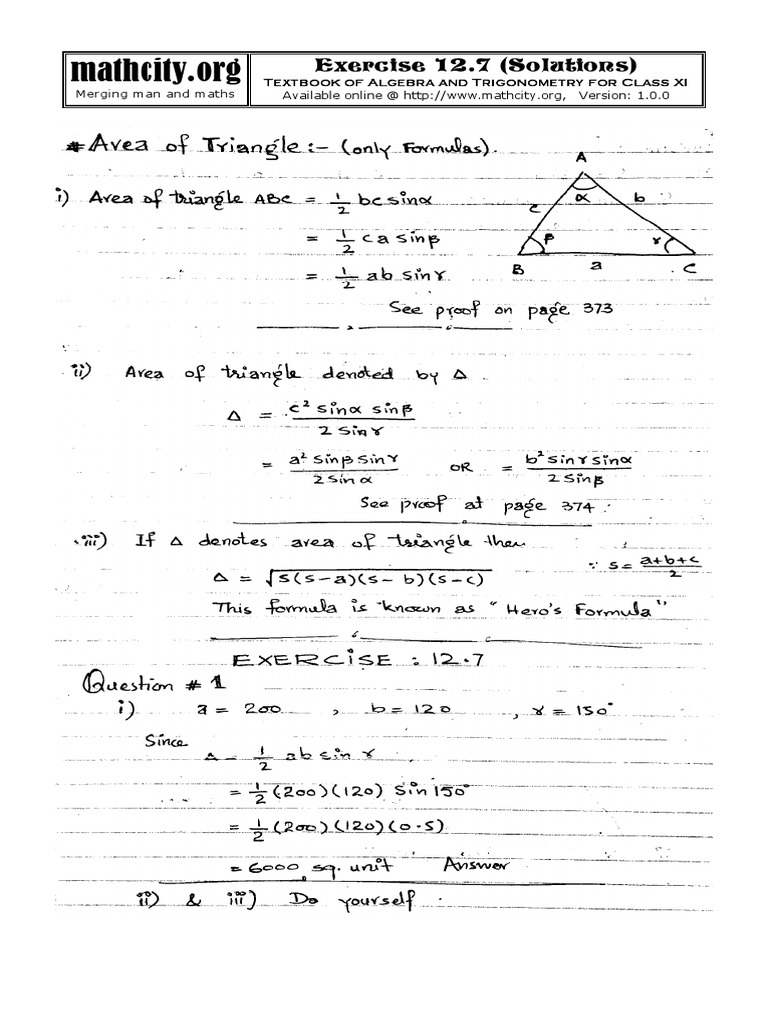 mathcity.org
Merging man and maths
Exercise 12.7 (Solutions)
TEXTBOOK OF ALGEBRA AND TRIGONOMETRY FOR CLASS XI
Available online @ http://www.mathcity.org, Version: 1.0.0
# Area of Triangle:- (only Formulas).
A
α
c
b
β
γ
B
a
C
i) Area of triangle ABC = 1/2 bc sinα
= 1/2 ca sinβ
= 1/2 ab sinγ
See proof on page 373
ii) Area of triangle denoted by Δ.
Δ = c² sinα sinβ / 2 sinγ
= a² sinβ sinγ / 2 sinα OR = b² sinγ sinα / 2 sinβ
See proof at page 374.
iii) If Δ denotes area of triangle then
Δ = √s(s-a)(s-b)(s-c) ∵ s = a+b+c / 2
This formula is known as "Hero's Formula"
EXERCISE : 12.7
Question # 1
i) a = 200 , b = 120 , γ = 150°
Since
Δ = 1/2 ab sin γ
= 1/2 (200)(120) sin 150°
= 1/2 (200)(120)(0.5)
= 6000 sq. unit Answer
ii) & iii) Do yourself.